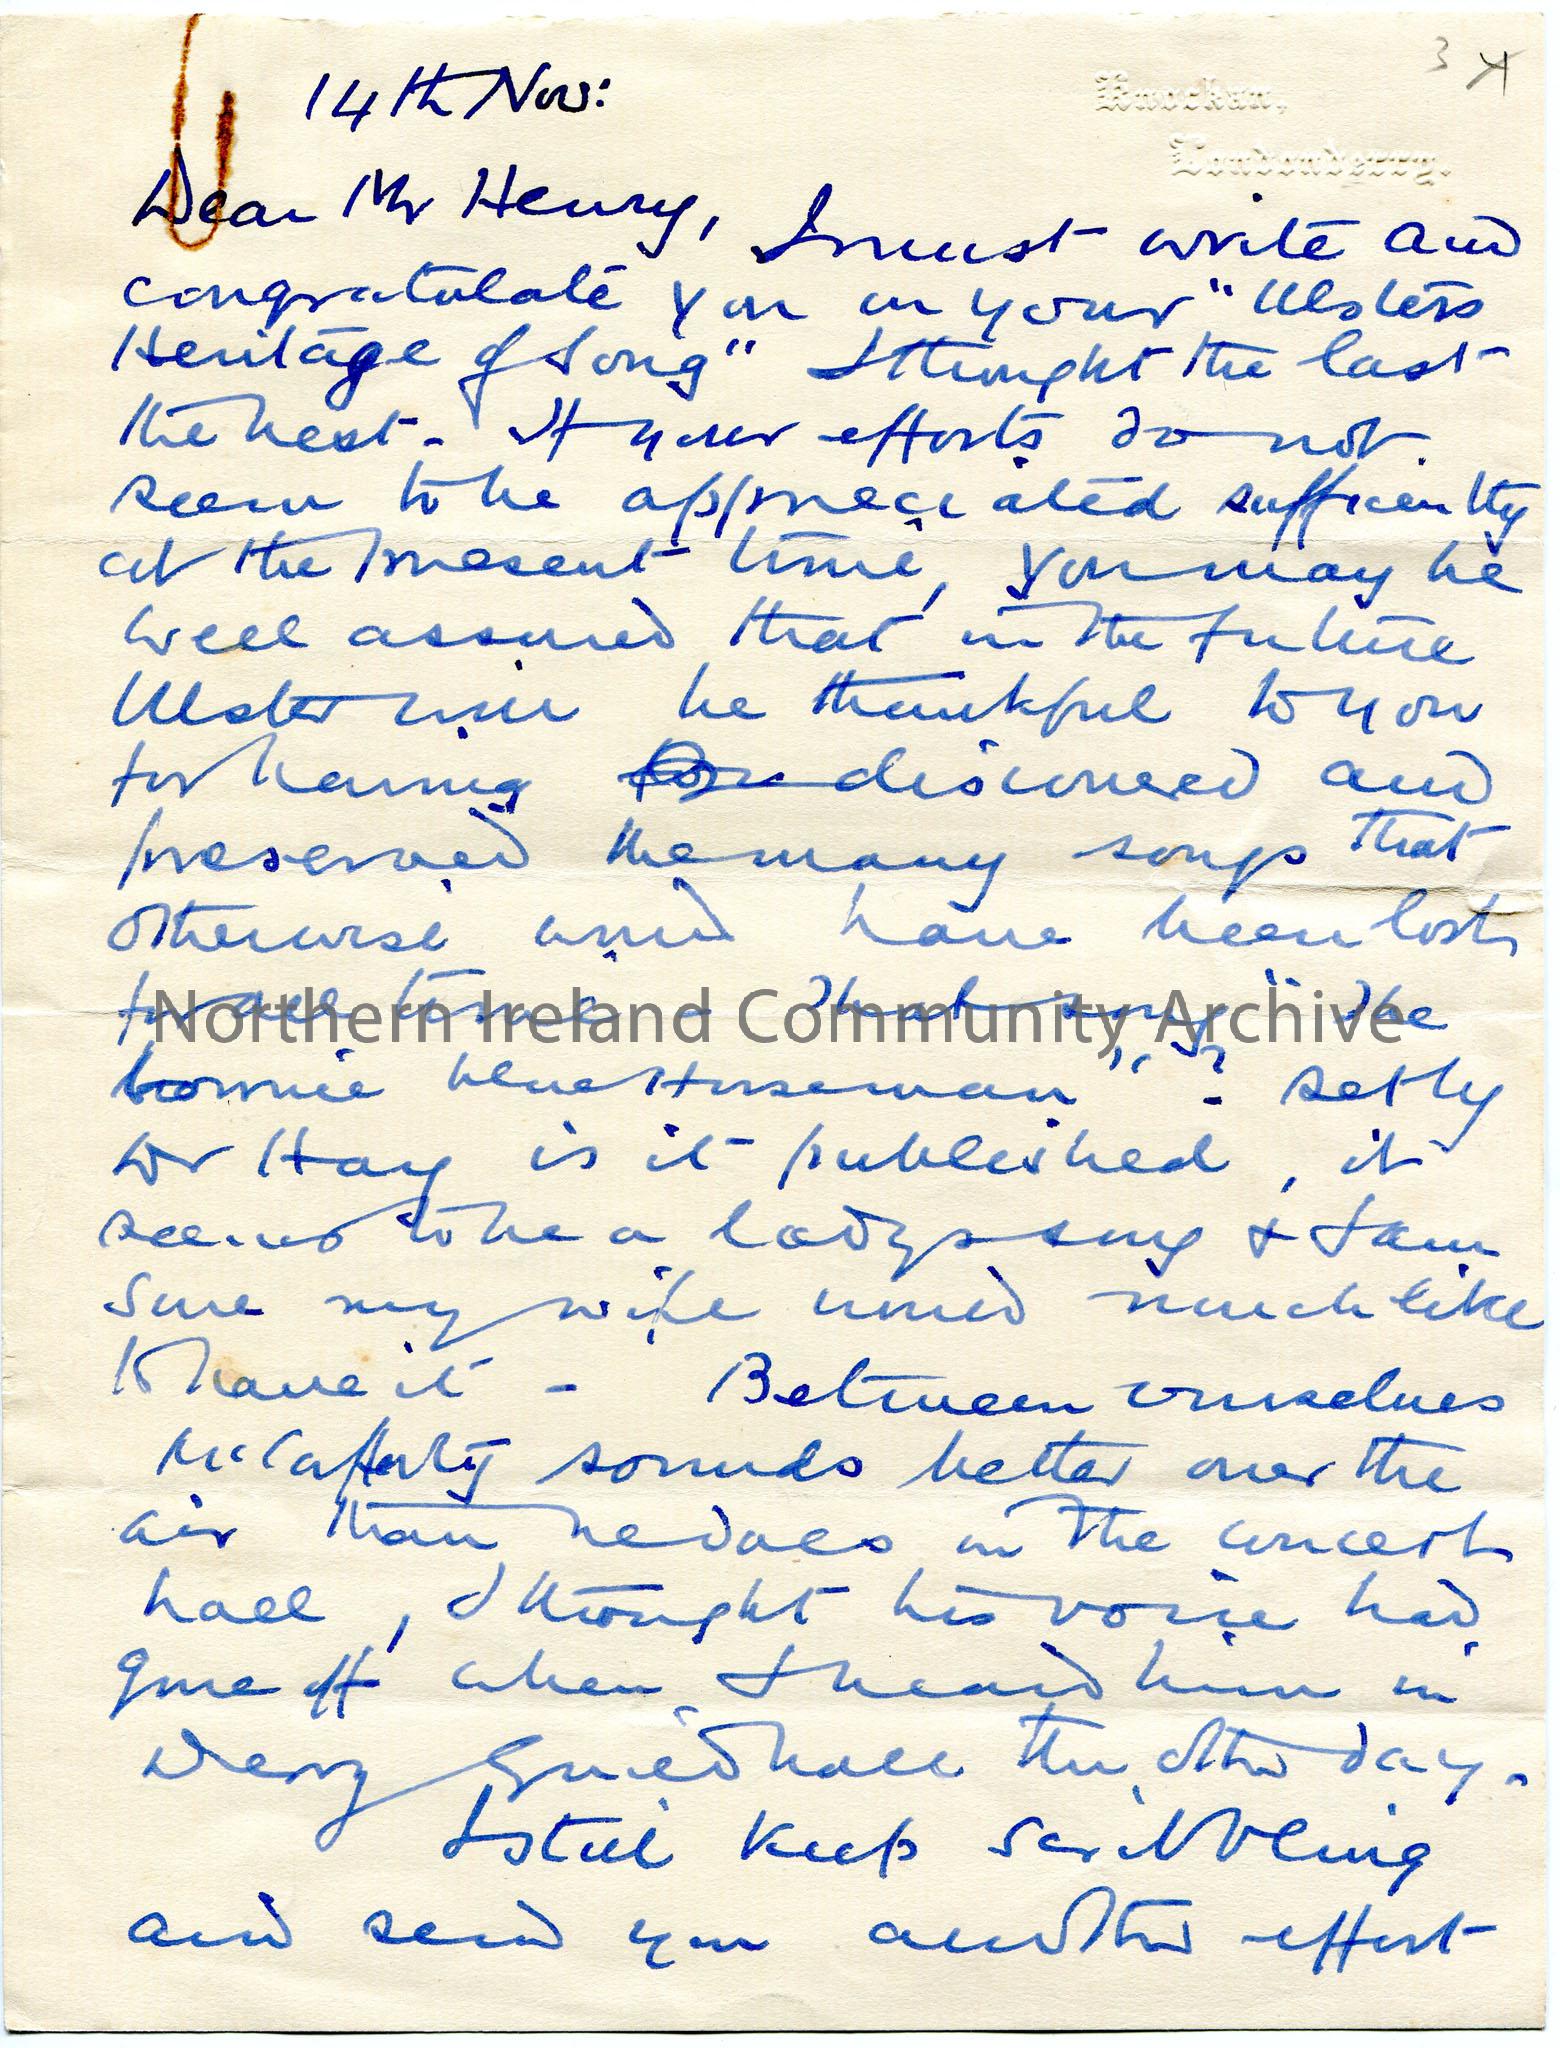 3
Knockan,
Londonderry.
14th Nov:
Dear Mr Henry, I must write and
congratulate you on your "Ulsters
Heritage of Song" I thought the last
the best - If your efforts do not
seem to be appreciated sufficiently
at the present time, you may be
well assured that in the future
Ulster will be thankful to you
for having discovered and
preserved the many songs that
otherwise would have been lost
for all time - That song "The
bonnie blue Horseman" ? set by
Dr Hay is it published, it
seems to be a ladys song & I am
sure my wife would much like
to have it - Between ourselves
McCafferty sounds better over the
air than he does in the concert
hall, I thought his voice had
gone off when I heard him in
Derry Guildhall the other day.
I still keep scribbling
and send you another effort
Northern Ireland Community Archive